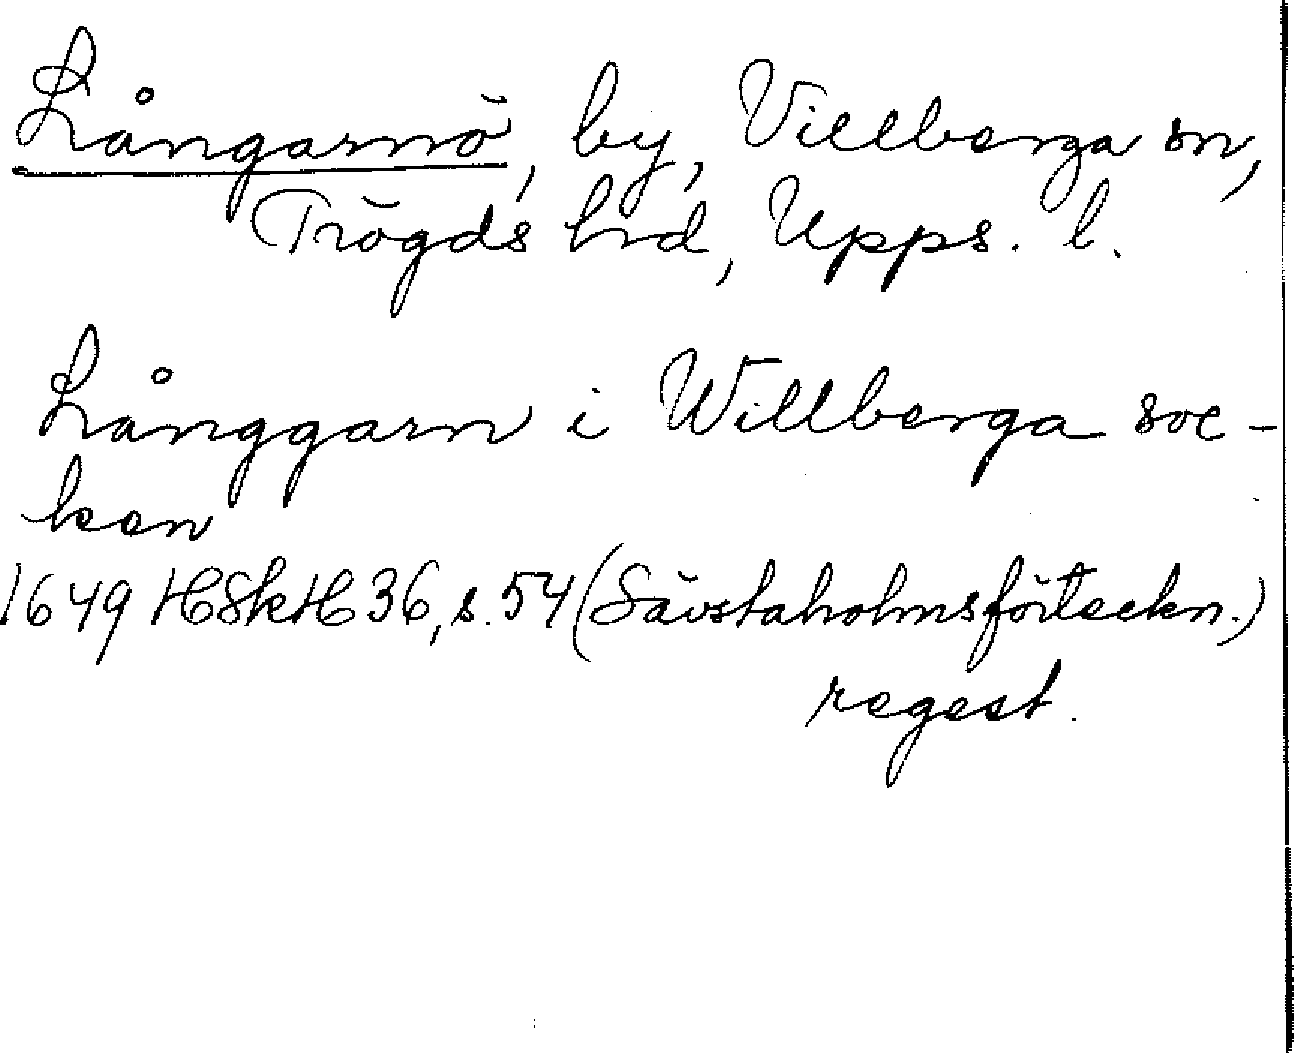 Långarnö, by, Villberga sn,
Trögds hd, Upps. l.
Långgarn i Willberga soc-
ken
1649 HSkH 36, s. 54 (Sävstaholmsförteckn.)
regest.